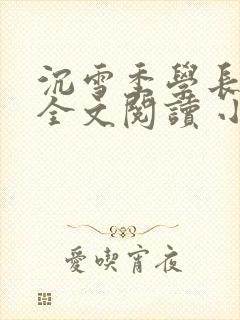 沉雪季學長
全文閱讀 小
愛喫宵夜